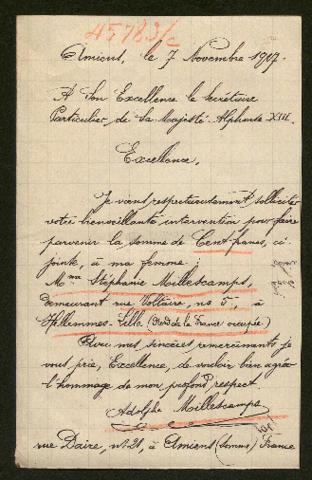 45783/2
Amiens, le 7 Novembre 1917.
A Son Excellence le Secrétaire
Particulier de Sa Majesté Alphonse XIII.
Excellence,
Je viens respectueusement solliciter
votre bienveillante intervention pour faire
parvenir la somme de Cent francs, ci-
jointe, à ma femme :
Mme Stéphanie Maillescamps,
demeurant rue Voltaire, no 5, à
Hellemmes-Lille (Nord de la France occupée)
Avec mes sincères remerciements je
vous prie, Excellence, de vouloir bien agréer
l'hommage de mon profond respect.
Adolphe Maillescamps
rue Daire, no 21, à Amiens (Somme) France